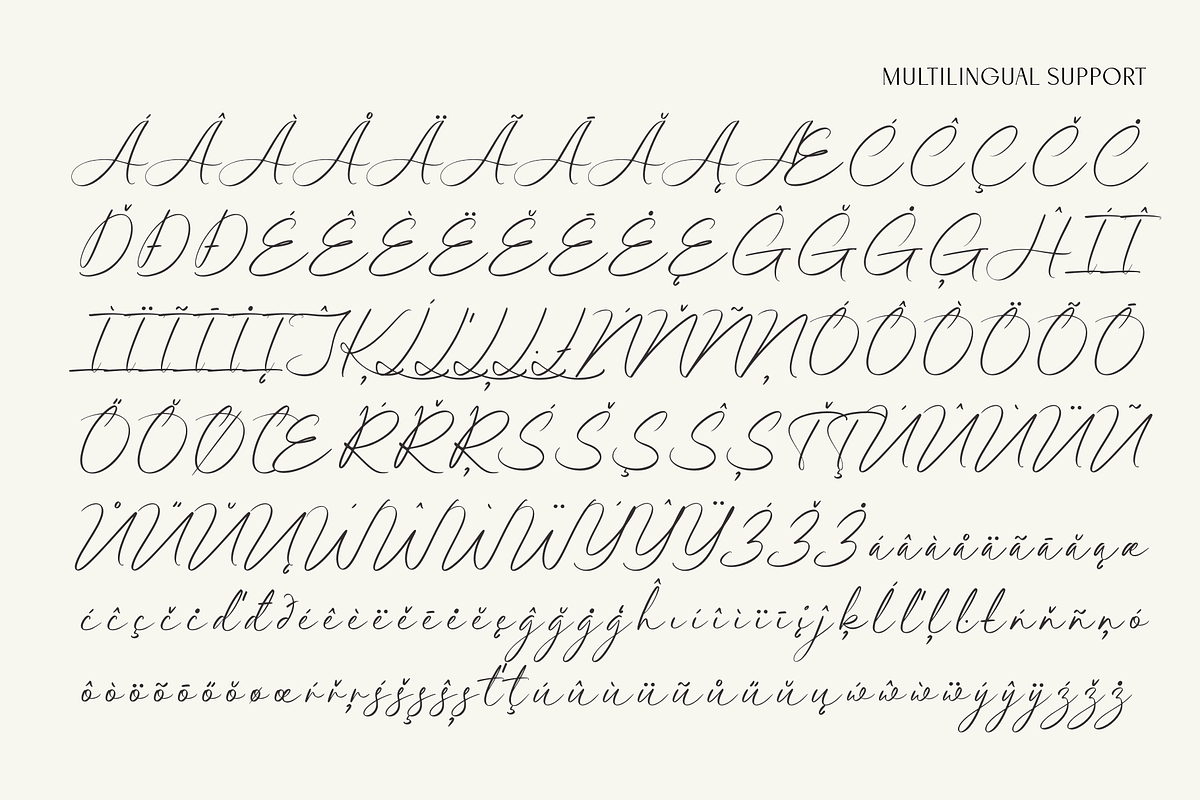 MULTILINGUAL SUPPORT
ÁÂÀÅÄÃĀĂĄÆĆĈÇČĊ
ĎĐÐÉÊÈËĚĒĖĘĜĞĠĢĤÍÎ
ÌÏĨĪİĮĴĶĹĽĻĿŁŃŇÑŅÓÔÒÖÕŌ
ŐŎØŒŔŘŖŚŠŞŜȘŤŢÚÛÙÜŨ
ŮŰŬŲẂŴẀẄÝŶŸŹŽŻáâàåäãāăąæ
ćĉçčċďđðéêèëěēėĕęĝğġģĥıíîìïīįĵķĺľļŀłńňñņó
ôòöõōőŏøœŕřŗśšşŝșťţúûùüũůűŭųẃŵẁẅýŷÿźžż